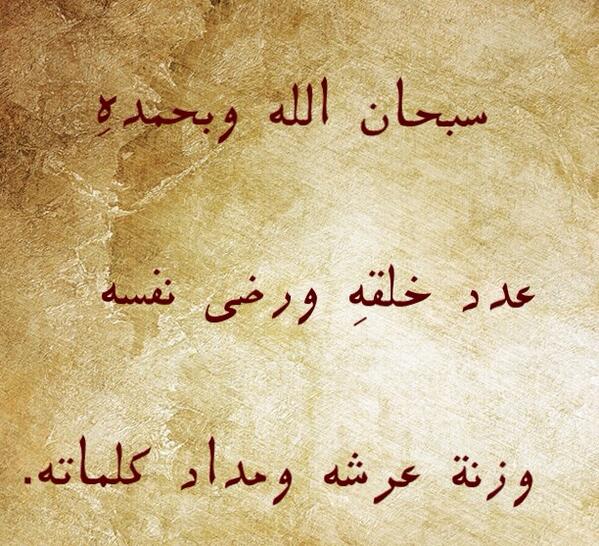 سبحان الله وبحمدهِ
عدد خلقهِ ورضى نفسه
وزنة عرشه ومداد كلماته.